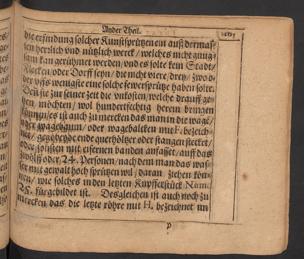 Ander Theil.
die erfindung solcher Kunstspritzen ein auß dermas-
sen herrlich vnd nützlich werck / welches nicht gnug-
sam kan gerühmet werden / vnd es solte kein Stadt /
Flecken / oder Dorff seyn / die nicht viere / drey / zwoo-
der auffs wenigste eine solche fewersprütze haben solte.
Deñ sie zu seiner zeit die vnkosten / welche drauff ge-
hen, möchten / wol hundertfechtig herein bringen
können / es ist auch zu mercken das man in die wage /
oder wagebaum / oder wagebalcken mit F. bezeich-
net, gehende ende querhöltzer oder stangen stecket /
oder zwischen mit eisernen banden anfasset / auff das
zwölff oder 24. Personen / nach dem man das was-
ser mit gewalt hoch sprützen wil / daran ziehen kön-
nen / wie solches in den letzten Kupfferstück Num.
25. fürgebildet ist. Desgleichen ist auch noch zu
mercken das die letzte röhre mit H. bezeichnet im
P